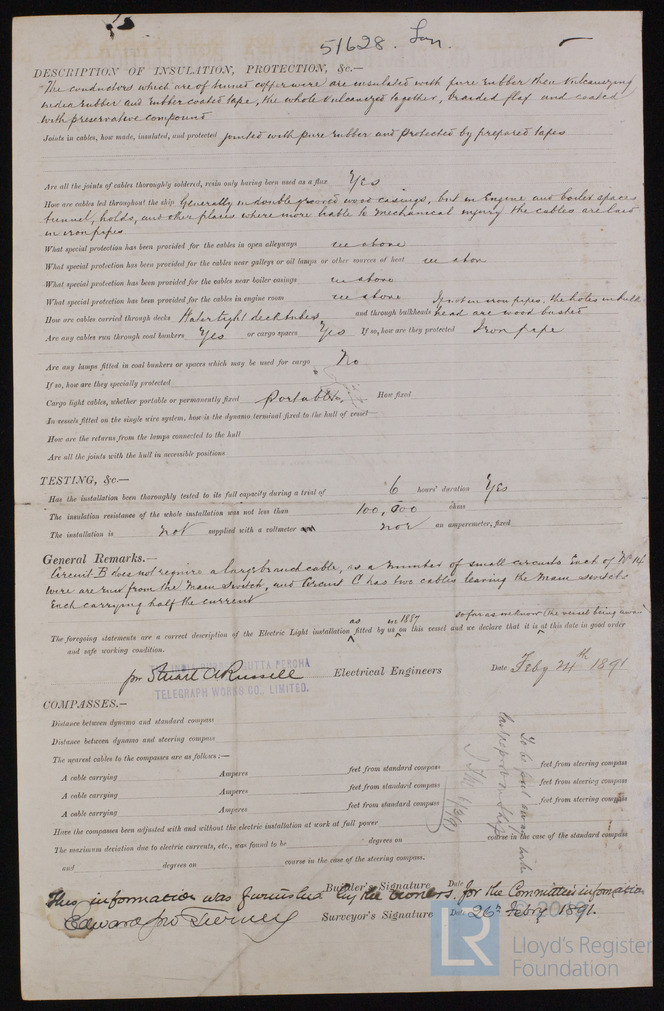 51628. Lon.
DESCRIPTION OF INSULATION, PROTECTION, &c.—
The conductors which are of tinned copper wire are insulated with pure rubber then Vulcanizing
india rubber and rubber coated tape, the whole Vulcanized together, braided flax and coated
with preservative compound
Joints in cables, how made, insulated, and protected jointed with pure rubber and protected by prepared tapes
Are all the joints of cables thoroughly soldered, resin only having been used as a flux Yes
How are cables led throughout the ship Generally in double grooved wood casings, but in Engine and boiler spaces
tunnel, holds, and other places where more liable to mechanical injury the cables are laid
in iron pipes
What special protection has been provided for the cables in open alleyways as above
What special protection has been provided for the cables near galleys or oil lamps or other sources of heat as above
What special protection has been provided for the cables near boiler casings as above
What special protection has been provided for the cables in engine room as above
If not in iron pipes, the holes in bulk
How are cables carried through decks Watertight deck tubes and through bulkheads head are wood bushed
Are any cables run through coal bunkers Yes or cargo spaces Yes If so, how are they protected Iron pipe
Are any lamps fitted in coal bunkers or spaces which may be used for cargo No
If so, how are they specially protected
Cargo light cables, whether portable or permanently fixed Portable How fixed
In vessels fitted on the single wire system, how is the dynamo terminal fixed to the hull of vessel
How are the returns from the lamps connected to the hull
Are all the joints with the hull in accessible positions
TESTING, &c.—
Has the installation been thoroughly tested to its full capacity during a trial of 6 hours' duration Yes
The insulation resistance of the whole installation was not less than 100,000 ohms
The installation is not supplied with a voltmeter nor an amperemeter, fixed
General Remarks.—
Circuit B does not require a large branch cable, as a number of small circuits Each of No 14
wire are run from the main switch, and Circuit C has two cables leaving the main switch
Each carrying half the current
as in 1887 so far as we know (the vessel being away)
The foregoing statements are a correct description of the Electric Light installation fitted by us on this vessel and we declare that it is at this date in good order
and safe working condition.
THE INDIA RUBBER, GUTTA PERCHA
pro Stuart A Russell Electrical Engineers Date Feby 24th 1891
TELEGRAPH WORKS CO., LIMITED.
COMPASSES.—
Distance between dynamo and standard compass
Distance between dynamo and steering compass
The nearest cables to the compasses are as follows:—
A cable carrying Amperes feet from standard compass feet from steering compass
A cable carrying Amperes feet from standard compass feet from steering compass
A cable carrying Amperes feet from standard compass feet from steering compass
Have the compasses been adjusted with and without the electric installation at work at full power
The maximum deviation due to electric currents, etc., was found to be degrees on course in the case of the standard compass
and degrees on course in the case of the steering compass.
Builder's Signature Date
This information was furnished by the owners, for the Committee's information
Edward Surveyor's Signature Date 26th Febry 1891.
LR
Lloyd's Register
Foundation